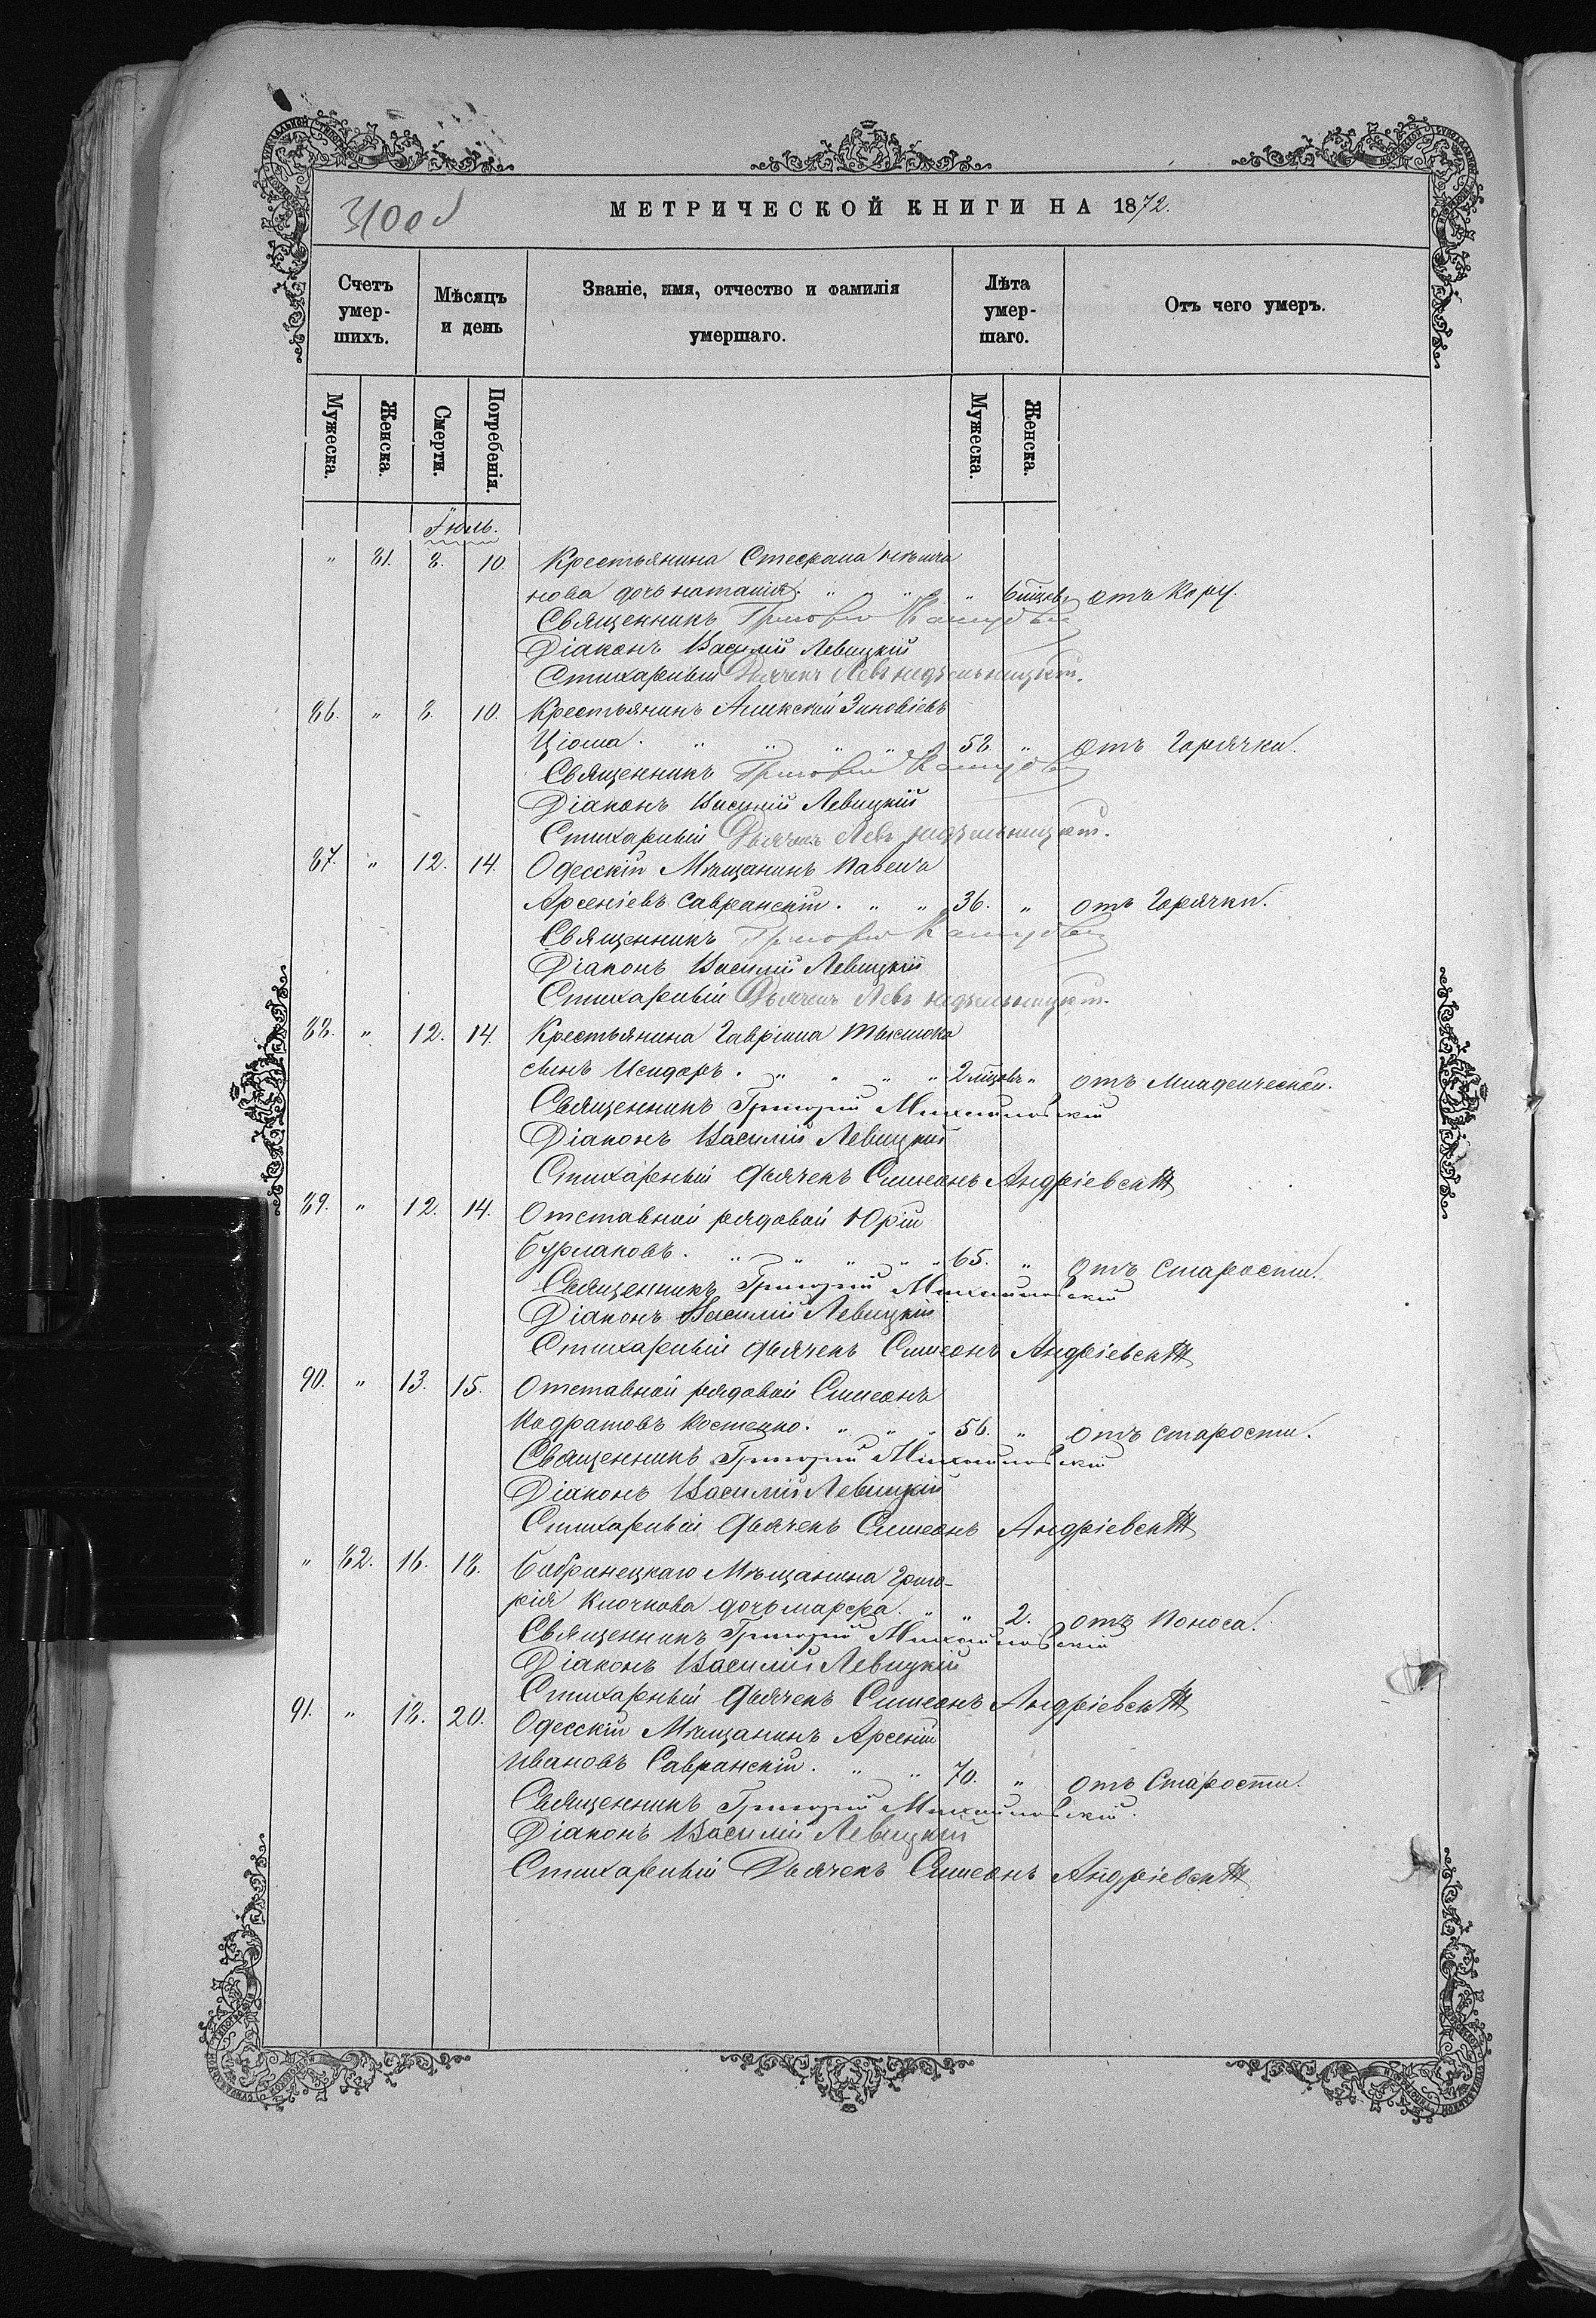 310 об
МЕТРИЧЕСКОЙ КНИГИ НА 1872.
Счетъ умер-шихъ.
Мѣсяцъ и день
Званіе, имя, отчество и фамилія умершаго.
Лѣта умер-шаго.
Отъ чего умеръ.
Мужеска. Женска. Смерти. Погребенія. Мужеска. Женска.
Іюль.
" 81. 8. 10. Крестьянина Стефана
нова дочь наталія. " " " " 6 мцовъ отъ Кору.
Священникъ Григорій
Діаконъ Василій Левицкій
Стихарный Дьячекъ Левъ недѣльницкій.
86. " 8. 10. Крестьянинъ Алексѣй Зиновіевъ
Ціома. " " " " 58. " отъ Горячки.
Священникъ Григорій
Діаконъ Василій Левицкій
Стихарный Дьячекъ Левъ недѣльницкій.
87. " 12. 14. Одесскій Мѣщанинъ Павелъ
Арсеніевъ Савранскій. " " 36. " отъ Горячки.
Священникъ Григорій
Діаконъ Василій Левицкій
Стихарный Дьячекъ Левъ недѣльницкій.
88. " 12. 14. Крестьянина Гавріила
сынъ Исидоръ. " " " " 2 мцовъ " отъ Младенческой.
Священникъ Григорій Михайловскій
Діаконъ Василій Левицкій
Стихарный Дьячекъ Симеонъ Андріевскій
89. " 12. 14. Отставной рядовой Юрій
Бурлаковъ. " " " " " 65. " отъ Старости.
Священникъ Григорій Михайловскій
Діаконъ Василій Левицкій
Стихарный Дьячекъ Симеонъ Андріевскій
90. " 13. 15. Отставной рядовой Симеонъ
Кодратовъ Костенко. " " " 56. " отъ старости.
Священникъ Григорій Михайловскій
Діаконъ Василій Левицкій
Стихарный Дьячекъ Симеонъ Андріевскій
" 82. 16. 18. Бобринецкаго Мѣщанина Григо-
рія Клочкова дочь марфа. " " 2. отъ Поноса.
Священникъ Григорій Михайловскій
Діаконъ Василій Левицкій
Стихарный Дьячекъ Симеонъ Андріевскій
91. " 18. 20. Одесскій Мѣщанинъ Арсеній
Ивановъ Савранскій. " " 70. " отъ Старости.
Священникъ Григорій Михайловскій.
Діаконъ Василій Левицкій
Стихарный Дьячекъ Симеонъ Андріевскій